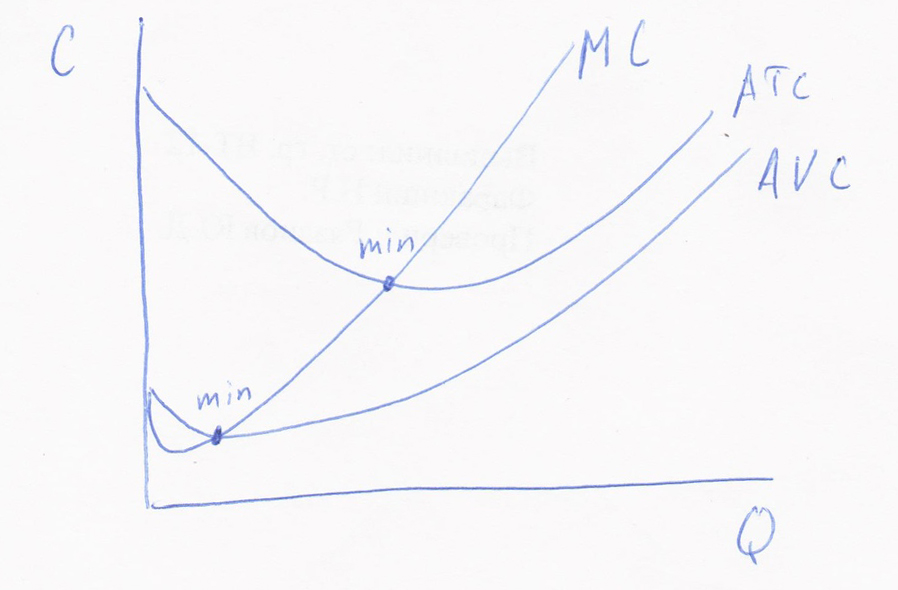 C
MC
ATC
AVC
min
min
Q